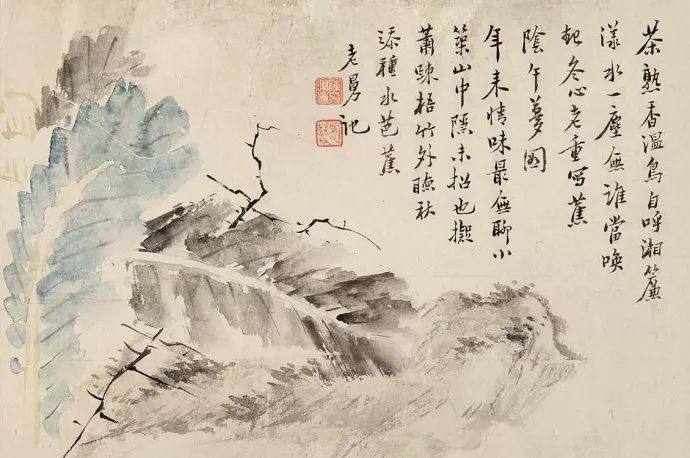 茶熟香溫鳥自呼湘簾
漾水一塵無誰當喚
起冬心老重寫蕉
陰午夢圖
年来情味最無聊小
築山中隱未招也擬
蕭踈梧竹外聽秋
添種水芭蕉
老曼記